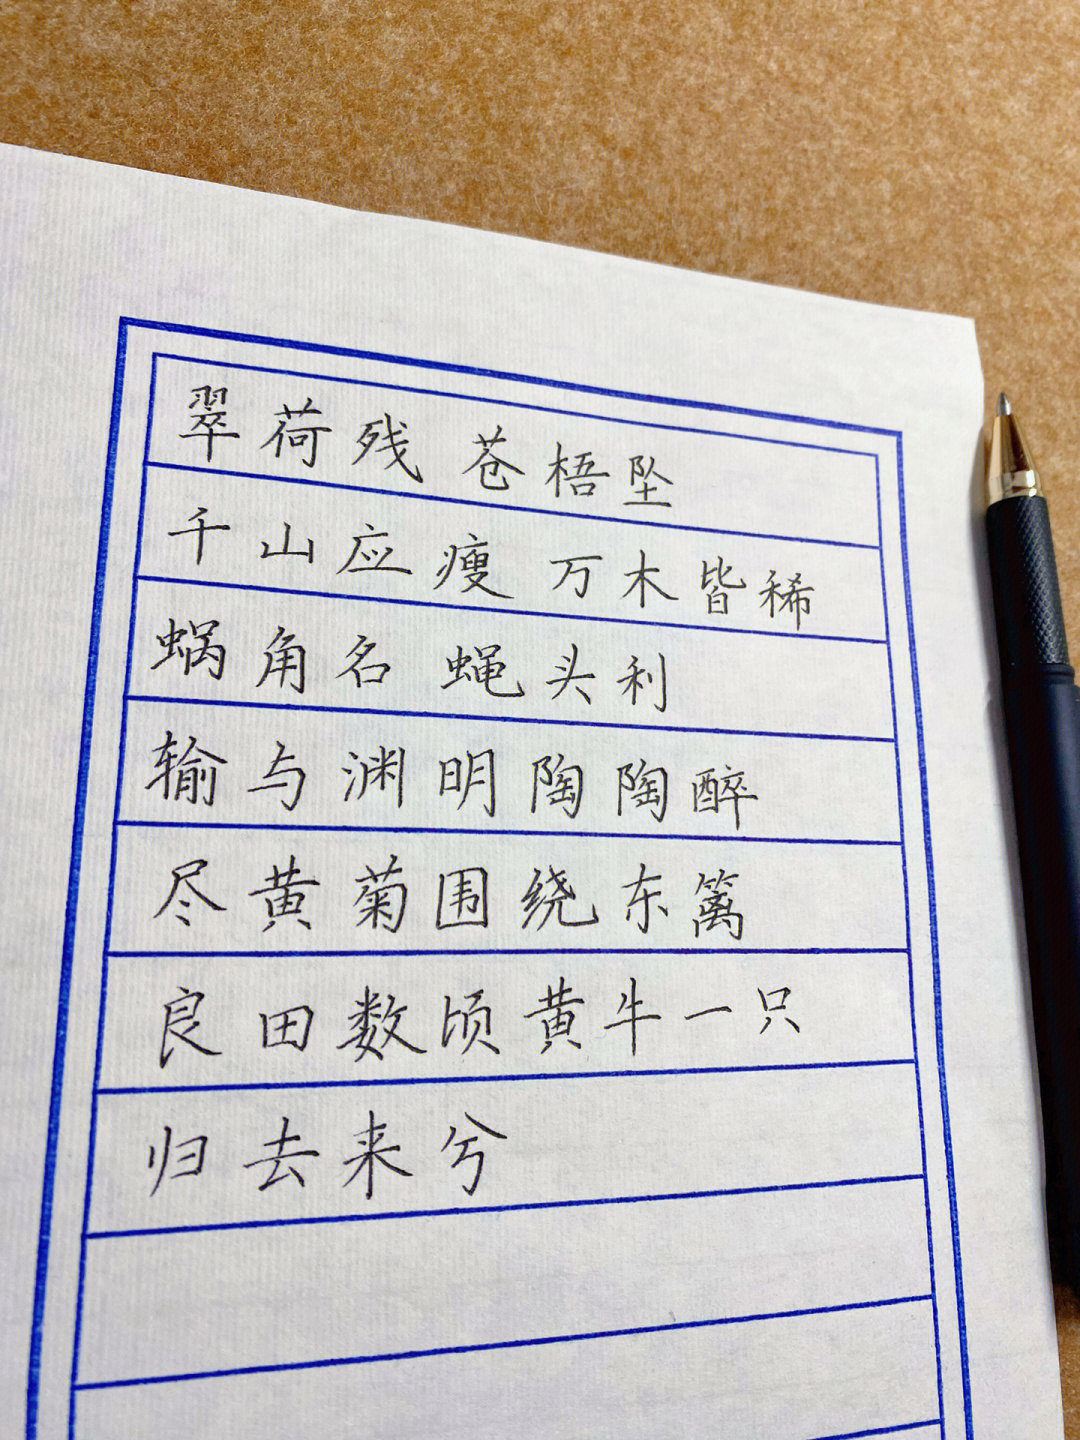 翠荷残 苍梧坠
千山应瘦 万木皆稀
蜗角名 蝇头利
输与渊明陶陶醉
尽黄菊围绕东篱
良田数顷黄牛一只
归去来兮